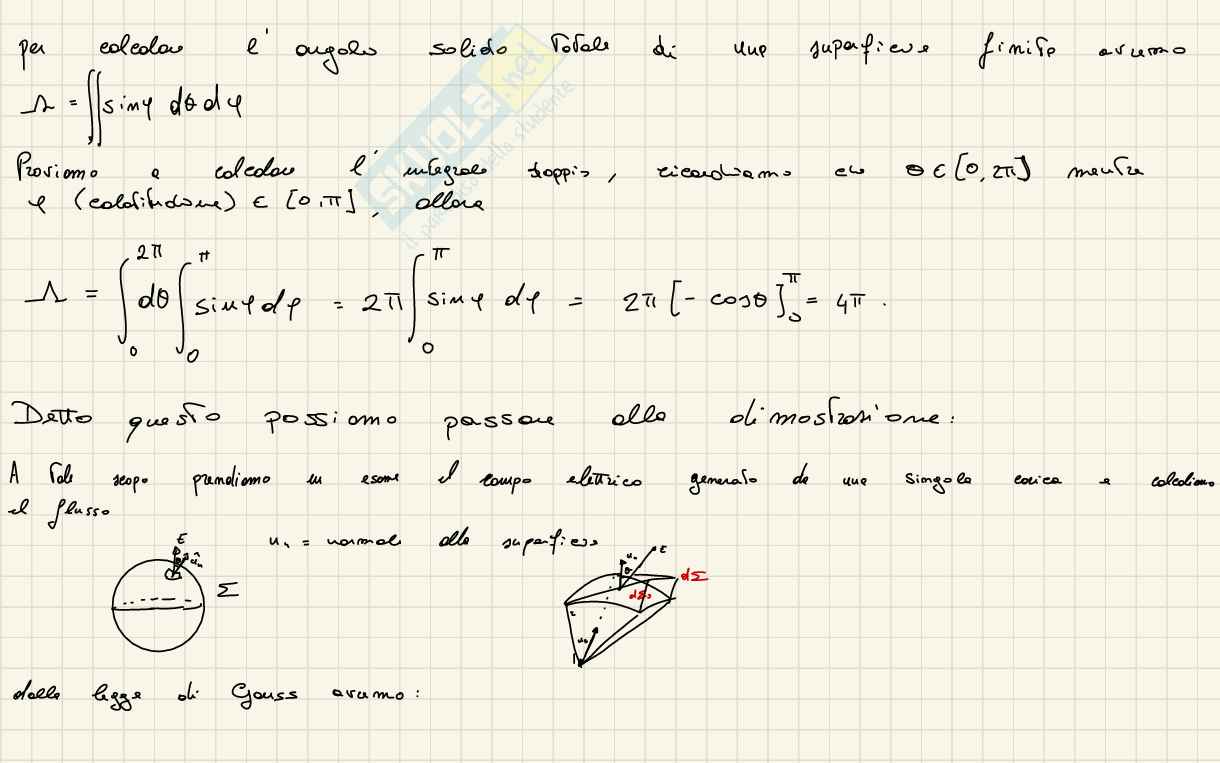 per calcolare l' angolo solido totale di una superficie finita avremo
Ω = ∬ sinφ dθ dφ
Proviamo a calcolare l' integrale doppio, ricordiamo che θ ∈ [0, 2π] mentre
φ (colatitudine) ∈ [0, π], allora
Ω = ∫₀^2π dθ ∫₀^π sinφ dφ = 2π ∫₀^π sinφ dφ = 2π [- cosθ]₀^π = 4π .
Detto questo possiamo passare alla dimostrazione:
A tale scopo prendiamo in esame il campo elettrico generato da una singola carica e calcoliamo
il flusso
uₙ = normale alla superficie
E
ûₙ
Σ
uₙ E
θ
dΣ
dΣ₀
dalla legge di Gauss avremo:
SKUOLA.net
il paradiso dello studente